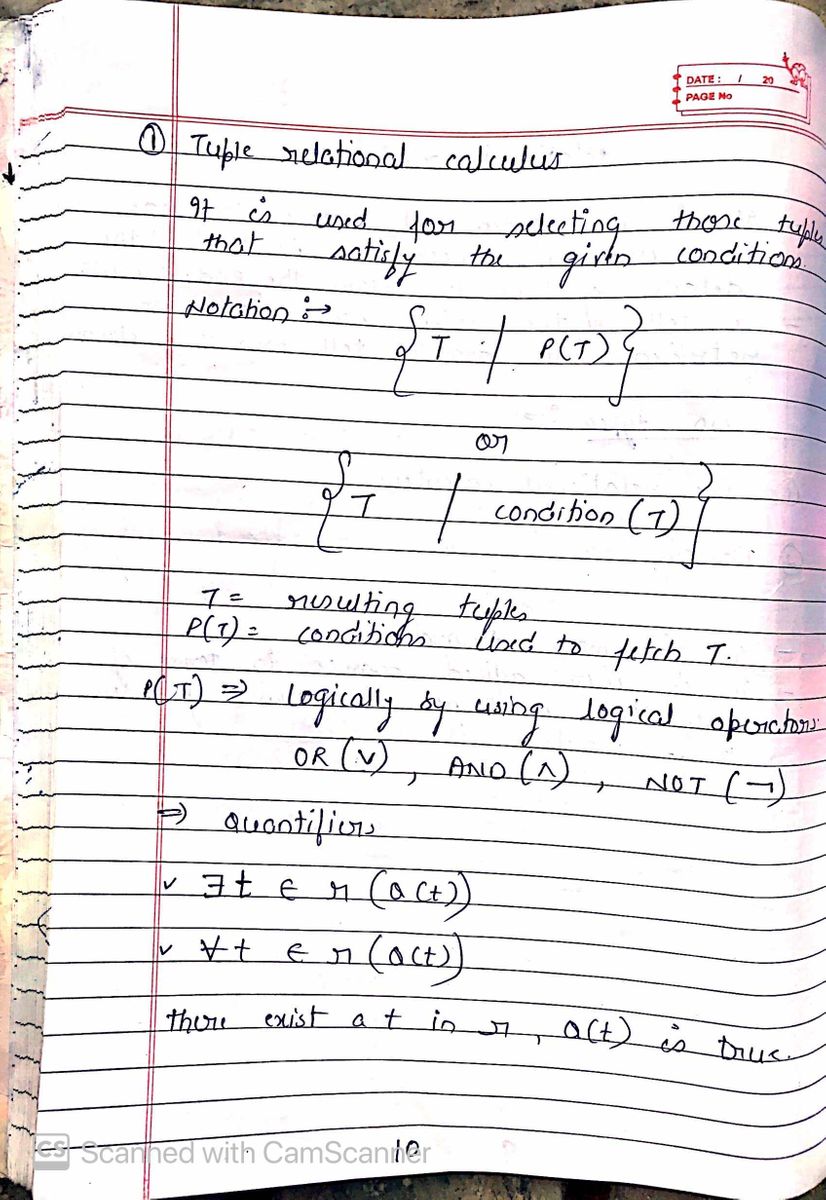 DATE: / 20
PAGE No
① Tuple relational calculus
It is used for selecting those tuples
that satisfy the given conditions
Notation :→
{ T | P(T) }
or
{ T | condition (T) }
T = resulting tuples
P(T) = conditions used to fetch T.
P(T) ⇒ Logically by using logical operators
OR (∨), AND (∧), NOT (¬)
⇒ Quantifiers
✓ ∃t ∈ r (Q(t))
✓ ∀t ∈ r (Q(t))
there exist a t in r, Q(t) is true.
10
CS Scanned with CamScanner